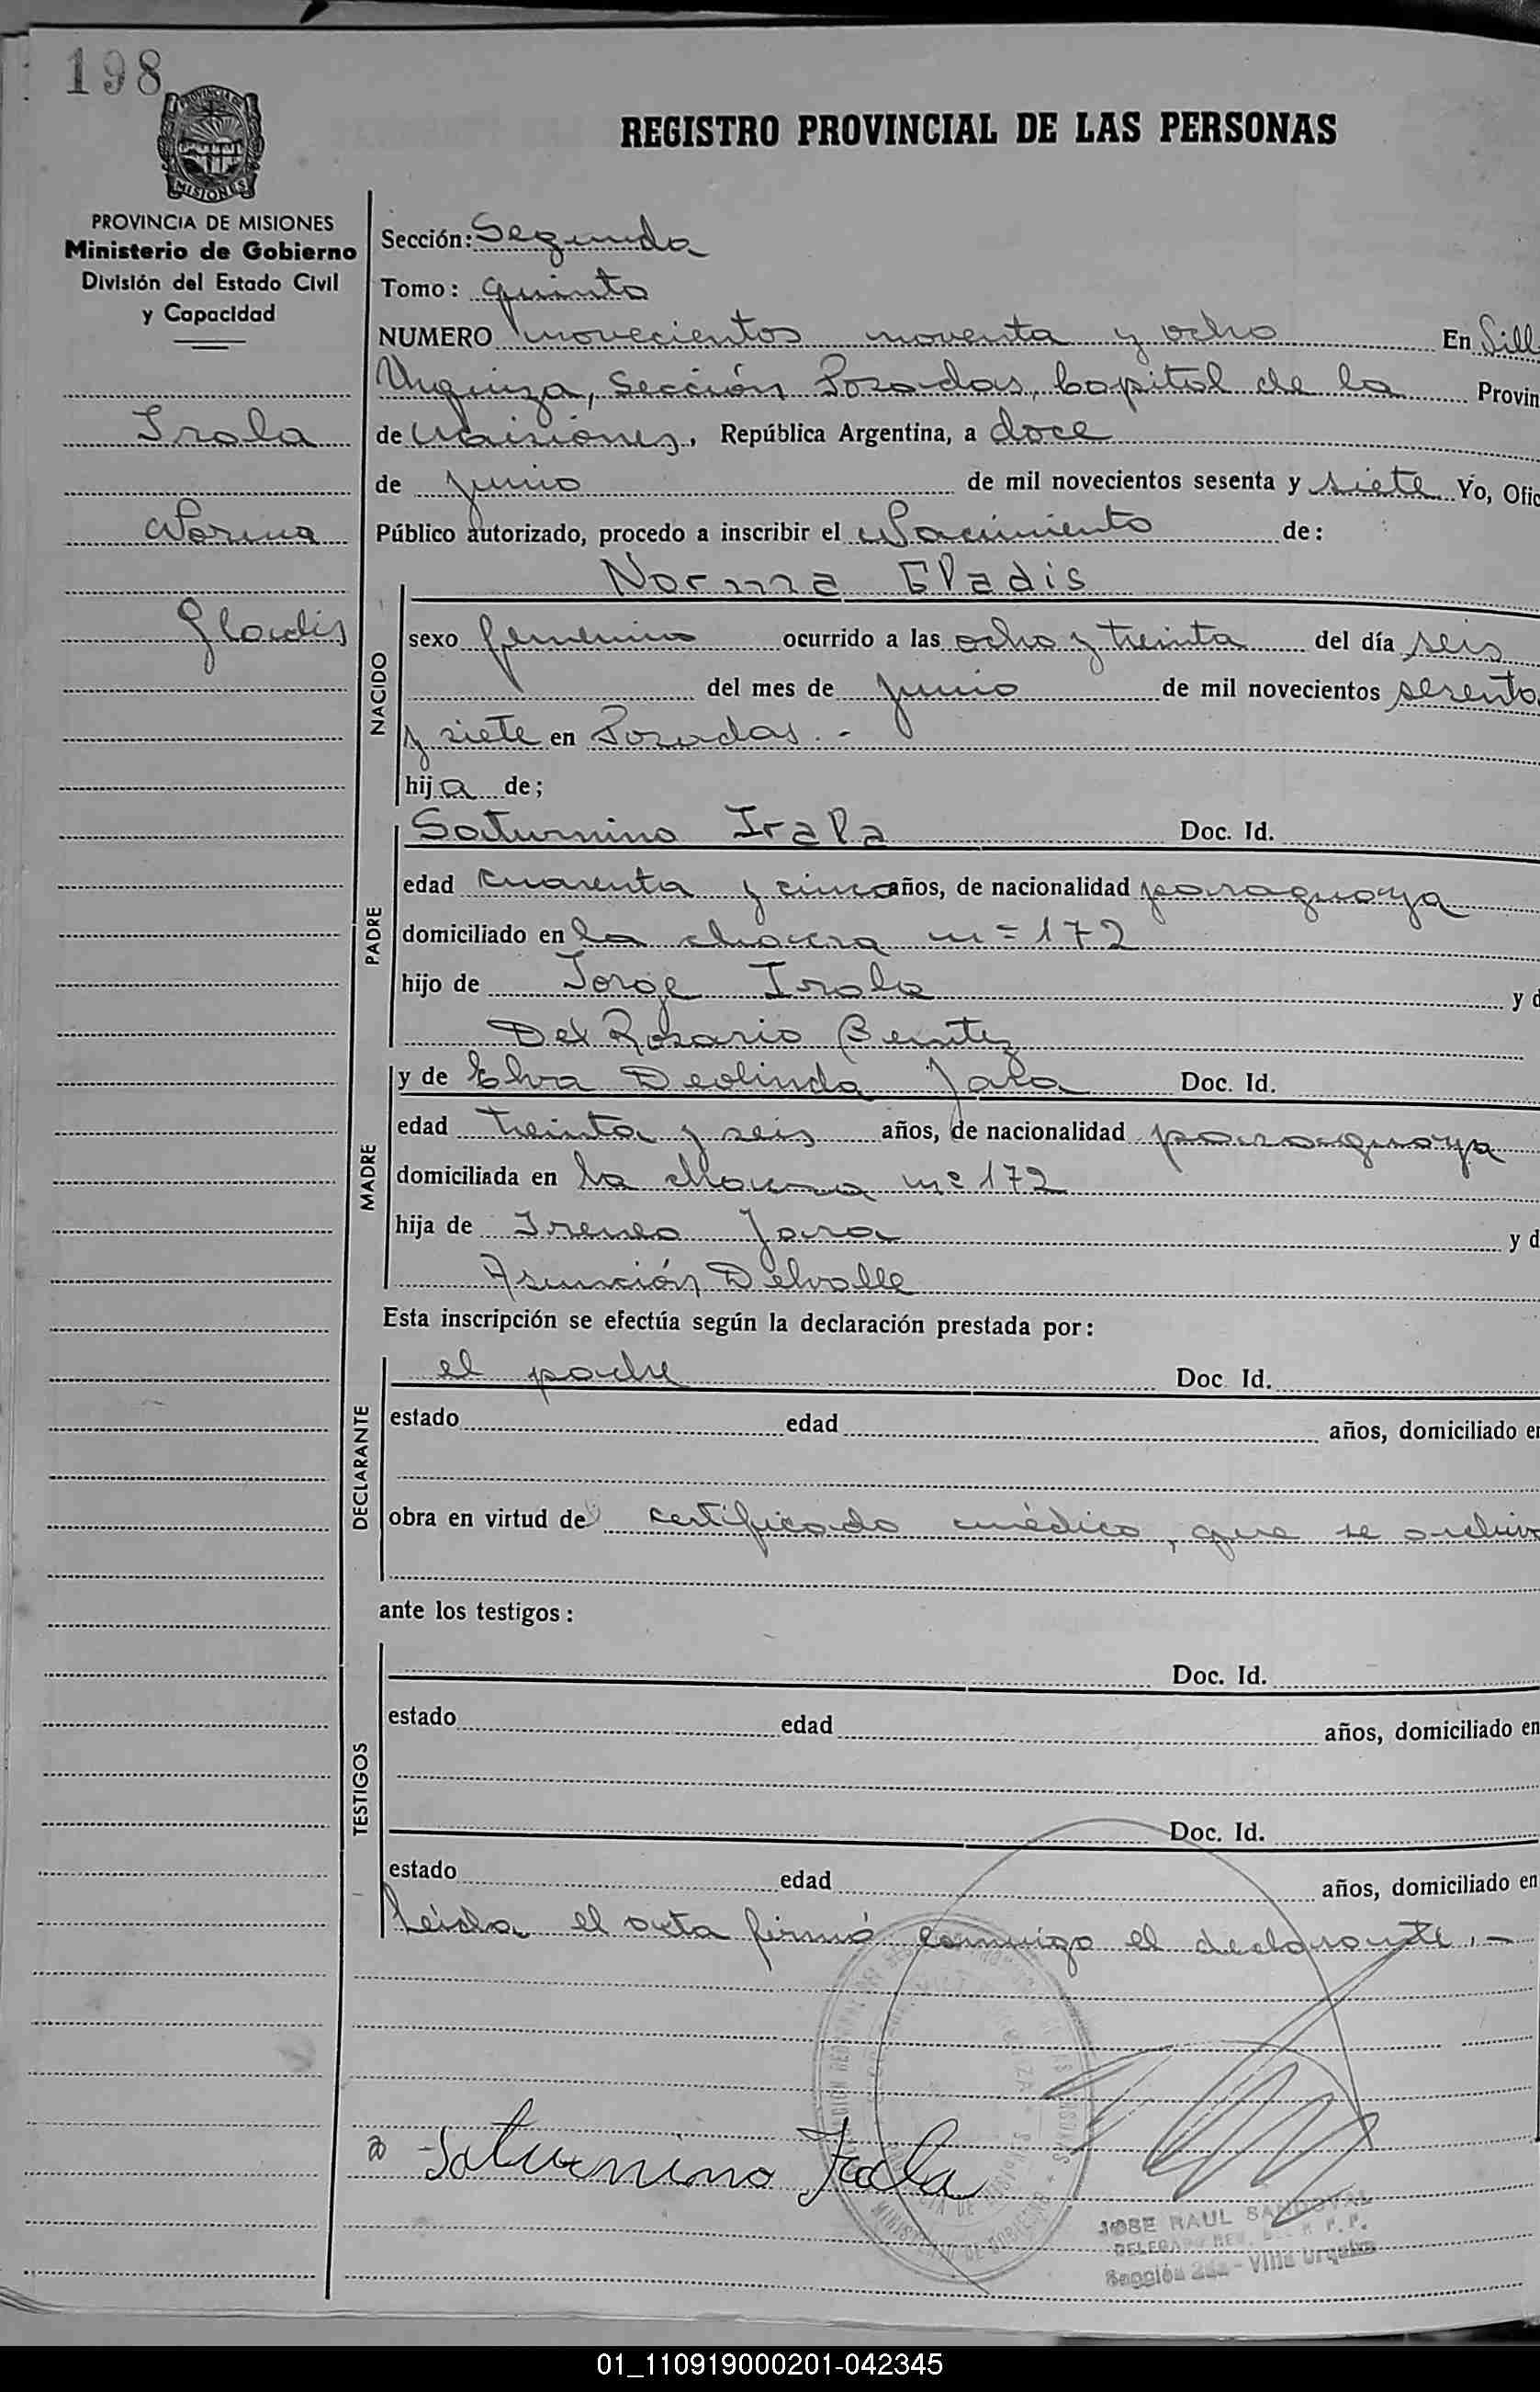 198
PROVINCIA DE
MISIONES
REGISTRO PROVINCIAL DE LAS PERSONAS
PROVINCIA DE MISIONES
Ministerio de Gobierno
División del Estado Civil
y Capacidad
Irala
Norma
Gladis
Sección: Segunda
Tomo: quinto
NUMERO novecientos noventa y ocho En Vill
Urquiza, Sección Posadas, Capital de la Provin
de Misiones, República Argentina, a doce
de junio de mil novecientos sesenta y siete Yo, Ofic
Público autorizado, procedo a inscribir el Nacimiento de:
NACIDO
Norma Gladis
sexo femenino ocurrido a las ocho y treinta del día seis
del mes de junio de mil novecientos sesenta
y siete en Posadas.-
hija de;
PADRE
Saturnino Irala Doc. Id.
edad cuarenta y cinco años, de nacionalidad paraguaya
domiciliado en la chacra n= 172
hijo de Jorge Irala y d
Del Rosario Benitez
MADRE
y de Elva Deolinda Jara Doc. Id.
edad treinta y seis años, de nacionalidad paraguaya
domiciliada en la chacra nº 172
hija de Ireneo Jara y d
Asunción Delvalle
Esta inscripción se efectúa según la declaración prestada por:
DECLARANTE
el padre Doc Id.
estado edad años, domiciliado en
obra en virtud de certificado médico, que se archiva
ante los testigos:
TESTIGOS
Doc. Id.
estado edad años, domiciliado en
Doc. Id.
estado edad años, domiciliado en
Leída el acta firmó conmigo el declarante.-
Saturnino Irala
JOSE RAUL SANDOVAL
Sección 2da - Villa Urquiza
01_110919000201-042345